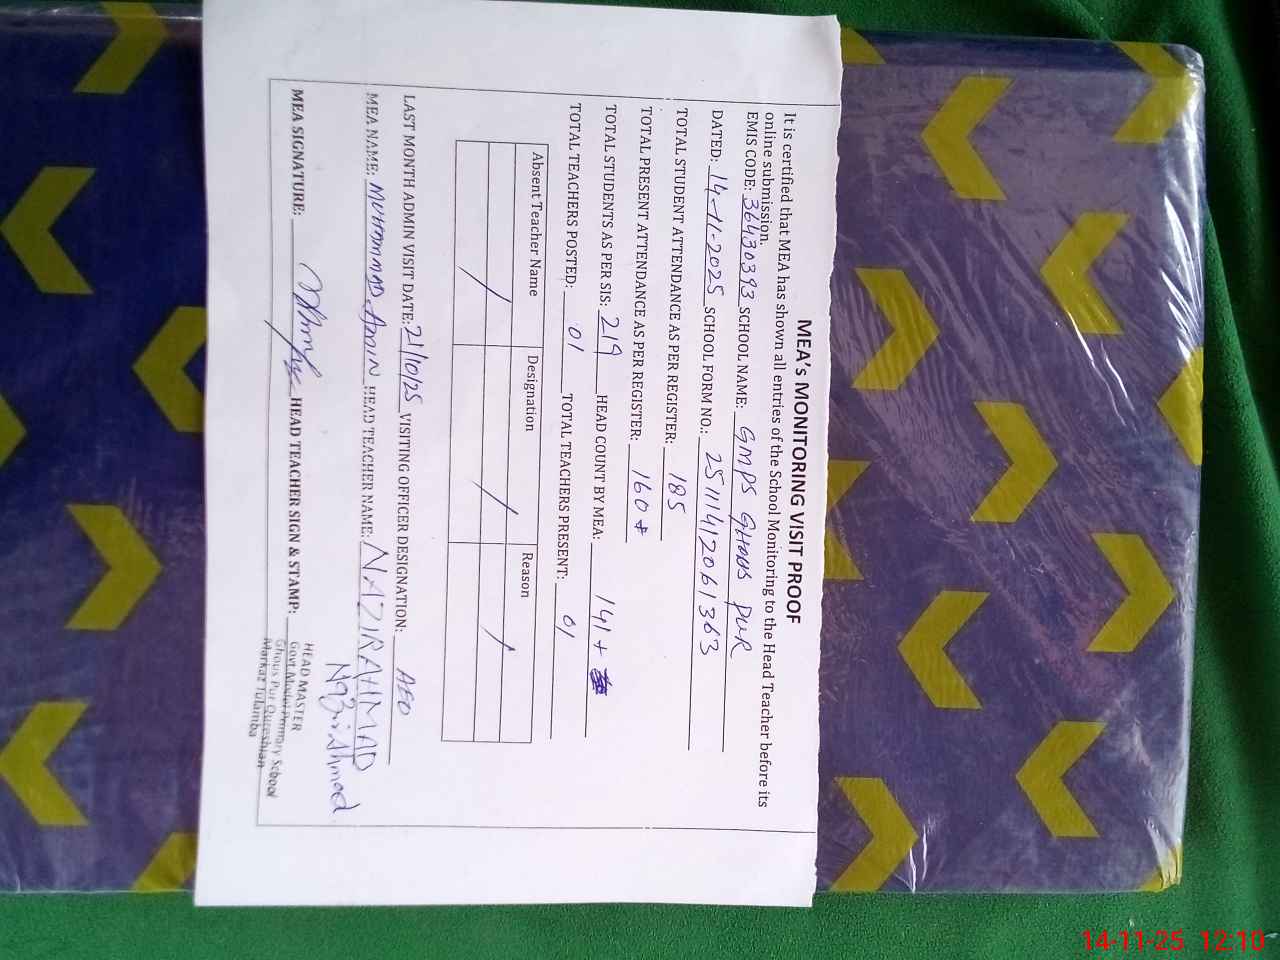 MEA's MONITORING VISIT PROOF
It is certified that MEA has shown all entries of the School Monitoring to the Head Teacher before its
online submission.
EMIS CODE: 36430393 SCHOOL NAME: GMPS GHOUS PUR
DATED: 14-11-2025 SCHOOL FORM NO.: 25111412061363
TOTAL STUDENT ATTENDANCE AS PER REGISTER: 185
TOTAL PRESENT ATTENDANCE AS PER REGISTER: 160
TOTAL STUDENTS AS PER SIS: 219 HEAD COUNT BY MEA: 141+
TOTAL TEACHERS POSTED: 01 TOTAL TEACHERS PRESENT: 01
Absent Teacher Name Designation Reason
LAST MONTH ADMIN VISIT DATE: 21/10/25 VISITING OFFICER DESIGNATION: AEO
MEA NAME: MUHAMMAD AMIN HEAD TEACHER NAME: NAZIR AHMAD
Nazir Ahmad
MEA SIGNATURE: HEAD TEACHER SIGN & STAMP:
HEAD MASTER
Govt Model Primary School
Ghous Pur Qureshian
Markaz Tulamba
14-11-25 12:10